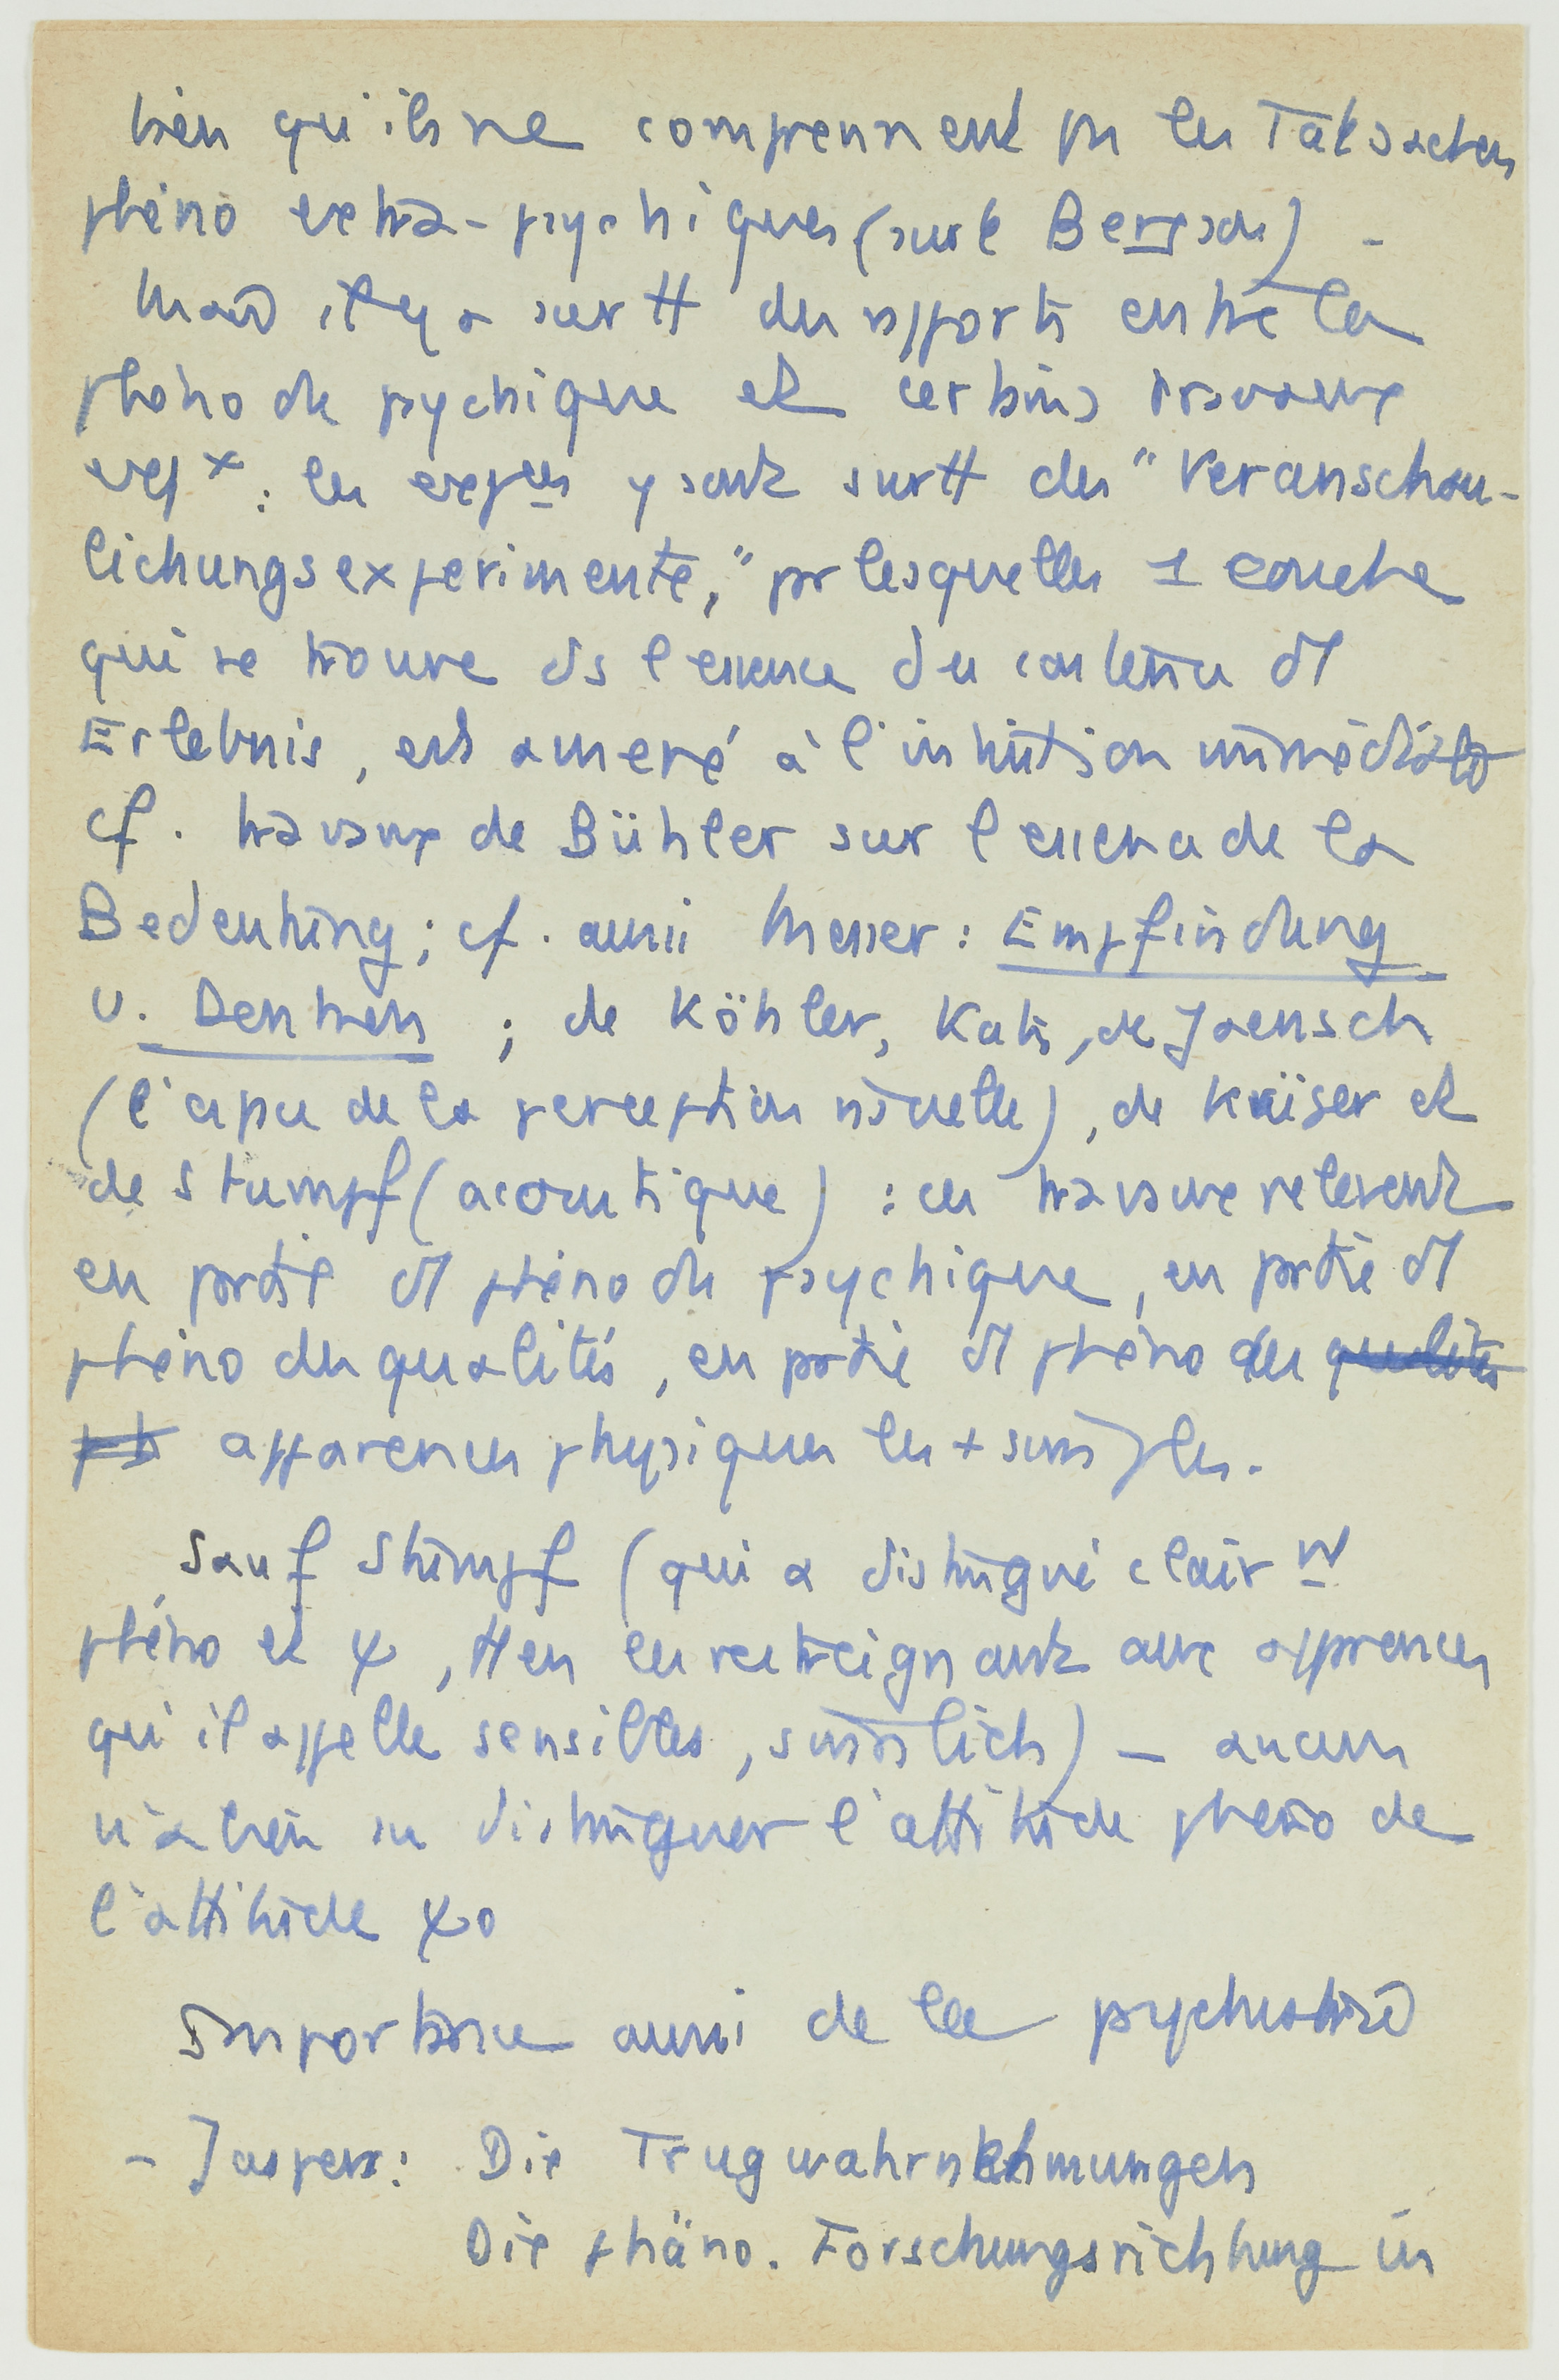 bien qu'ils ne comprennent pas les Tatsachen
phéno extra-psychiques (surt Bergson) -
Mais il y a surtt des rapports entre la
phéno du psychique et certains travaux
expx : les expces y sont surtt des "Veranschau-
lichungsexperimente," pr lesquelles 1 couche
qui se trouve ds l'essence du contenu dl
Erlebnis, est amené à l'intuition immédiate
cf. travaux de Bühler sur l'essence de la
Bedeutung ; cf. aussi Messer : Empfindung
u. Denken ; de Köhler, Katz, de Jaensch
(l'espace de la perception visuelle), de Krüger et
de Stumpf (acoustique) : ces travaux relèvent
en partie dl phéno du psychique, en partie dl
phéno des qualités, en partie dl phéno des qualités
ph apparences physiques les + simples.
Sauf Stumpf (qui a distingué clairt
phéno et ψ, tt en les restreignant aux apparences
qu'il appelle sensibles, sinnlich) - aucun
n'a bien su distinguer l'attitude phéno de
l'attitude ψo
Importance aussi de la psychiatrie
- Jaspers : Die Trugwahrnehmungen
Die phäno. Forschungsrichtung in